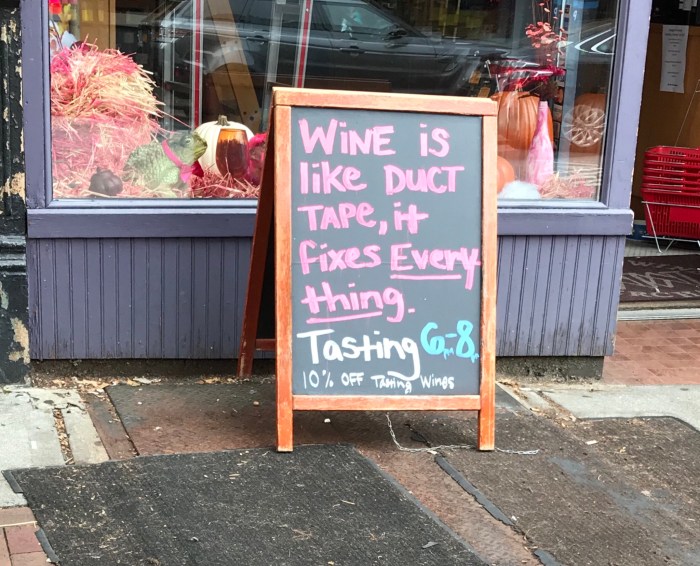 WiNE is
like DUCT
TAPE, it
fixes Every
thing.
Tasting 6-8
10% OFF Tasting Wines